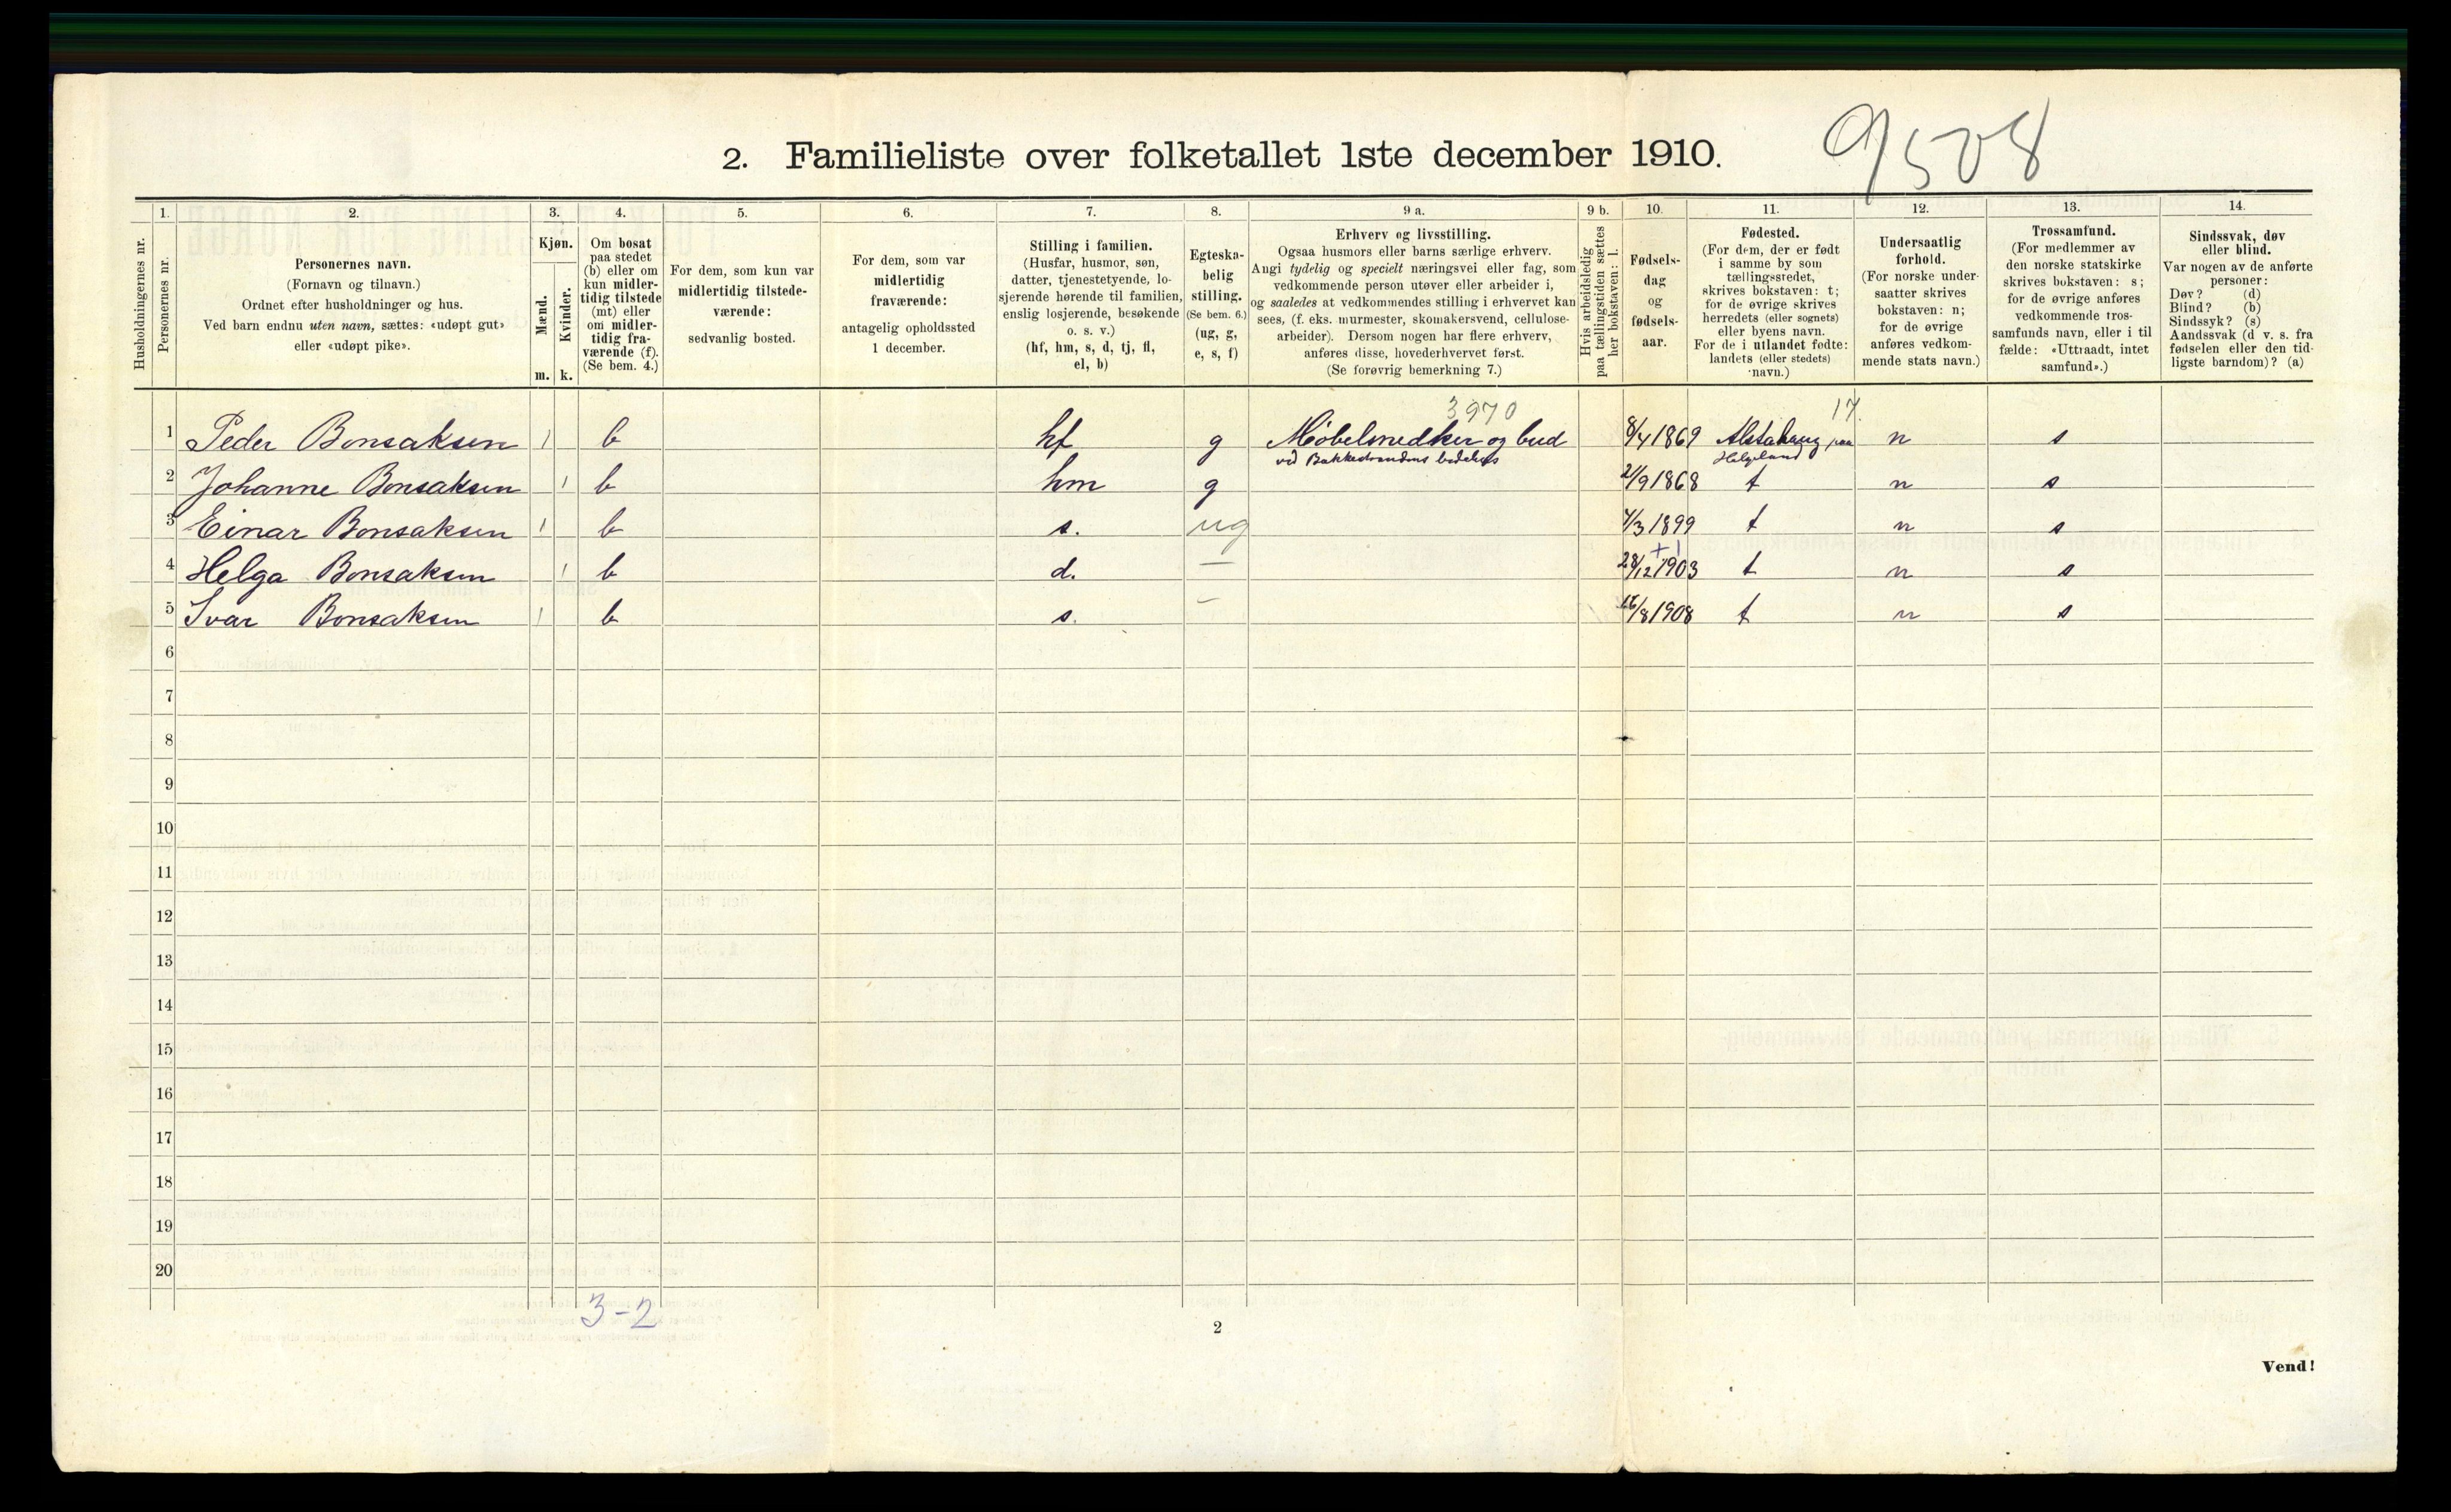 9508
2. Familieliste over folketallet 1ste december 1910.
Husholdningernes nr.
1.
Personernes nr.
2.
Personernes navn.
(Fornavn og tilnavn.)
Ordnet efter husholdninger og hus.
Ved barn endnu uten navn, sættes: «udøpt gut»
eller «udøpt pike».
3.
Kjøn.
Mænd.
Kvinder.
m.
k.
4.
Om bosat
paa stedet
(b) eller om
kun midler-
tidig tilstede
(mt) eller
om midler-
tidig fra-
værende (f).
(Se bem. 4.)
5.
For dem, som kun var
midlertidig tilstede-
værende:
sedvanlig bosted.
6.
For dem, som var
midlertidig
fraværende:
antagelig opholdssted
1 december.
7.
Stilling i familien.
(Husfar, husmor, søn,
datter, tjenestetyende, lo-
sjerende hørende til familien,
enslig losjerende, besøkende
o. s. v.)
(hf, hm, s, d, tj, fl,
el, b)
8.
Egteska-
belig
stilling.
(Se bem. 6.)
(ug, g,
e, s, f)
9 a.
Erhverv og livsstilling.
Ogsaa husmors eller barns særlige erhverv.
Angi tydelig og specielt næringsvei eller fag, som
vedkommende person utøver eller arbeider i,
og saaledes at vedkommendes stilling i erhvervet kan
sees, (f. eks. murmester, skomakersvend, cellulose-
arbeider). Dersom nogen har flere erhverv,
anføres disse, hovederhvervet først.
(Se forøvrig bemerkning 7.)
9 b.
Hvis arbeidsledig
paa tællingstiden sættes
her bokstaven: l.
10.
Fødsels-
dag
og
fødsels-
aar.
11.
Fødested.
(For dem, der er født
i samme by som
tællingsstedet,
skrives bokstaven: t;
for de øvrige skrives
herredets (eller sognets)
eller byens navn.
For de i utlandet fødte:
landets (eller stedets)
navn.)
12.
Undersaatlig
forhold.
(For norske under-
saatter skrives
bokstaven: n;
for de øvrige
anføres vedkom-
mende stats navn.)
13.
Trossamfund.
(For medlemmer av
den norske statskirke
skrives bokstaven: s;
for de øvrige anføres
vedkommende tros-
samfunds navn, eller i til-
fælde: «Uttraadt, intet
samfund».)
14.
Sindssvak, døv
eller blind.
Var nogen av de anførte
personer:
Døv? (d)
Blind? (b)
Sindssyk? (s)
Aandssvak (d v. s. fra
fødselen eller den tid-
ligste barndom)? (a)
3970 17.
1 Peder Bonsaksen 1 b hf g Møbelsnedker og bud 8/4 1869 Alstahaug paa n s
ved Bakkestrandens Helgeland
2 Johanne Bonsaksen 1 b hm g 21/9 1868 t n s
3 Einar Bonsaksen 1 b s. ug 4/3 1899 t n s
4 Helga Bonsaksen 1 b d. — 28/12 1903 t n s
5 Ivar Bonsaksen 1 b s. — /8 1908 t n s
6
7
8
9
10
11
12
13
14
15
16
17
18
19
20
3-2
2
Vend!